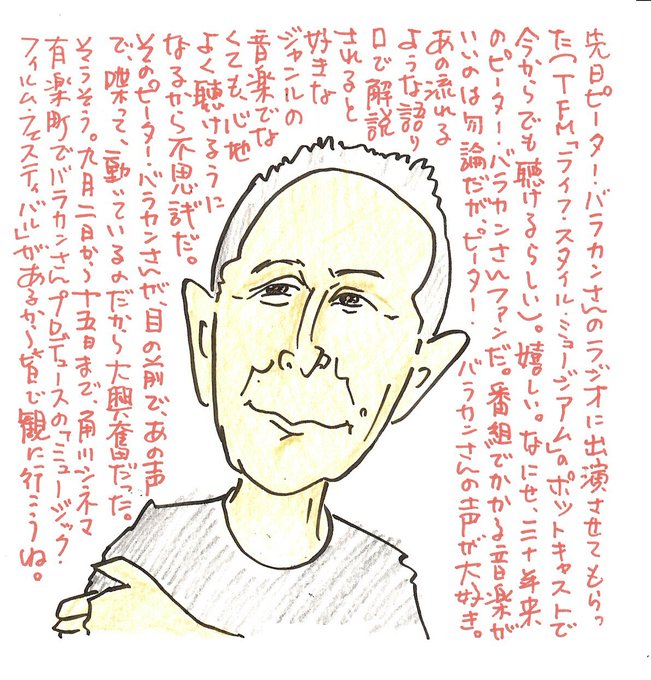 先日ピーター・バラカンさんのラジオに出演させてもらっ
た(TFM「ライフ・スタイル・ミュージアム」のポットキャストで
今からでも聴けるらしい)。嬉しい。なにせ、三十年来
のピーター・バラカンさんファンだ。番組でかかる音楽が
いいのは勿論だが、ピーター・バラカンさんの声が大好き。
あの流れる
ような語り
口で解説
されると
好きな
ジャンルの
音楽でな
くても、心地
よく聴けるうに
なるから不思議だ。
そのピーター・バラカンさんが、目の前で、あの声
で、喋って、動いているのだから大興奮だった。
そうそう。九月二日から十五日まで、角川シネマ
有楽町でバラカンさんプロデュースの「ミュージック・
フィルム・フェスティバル」があるから皆で観に行こうね。